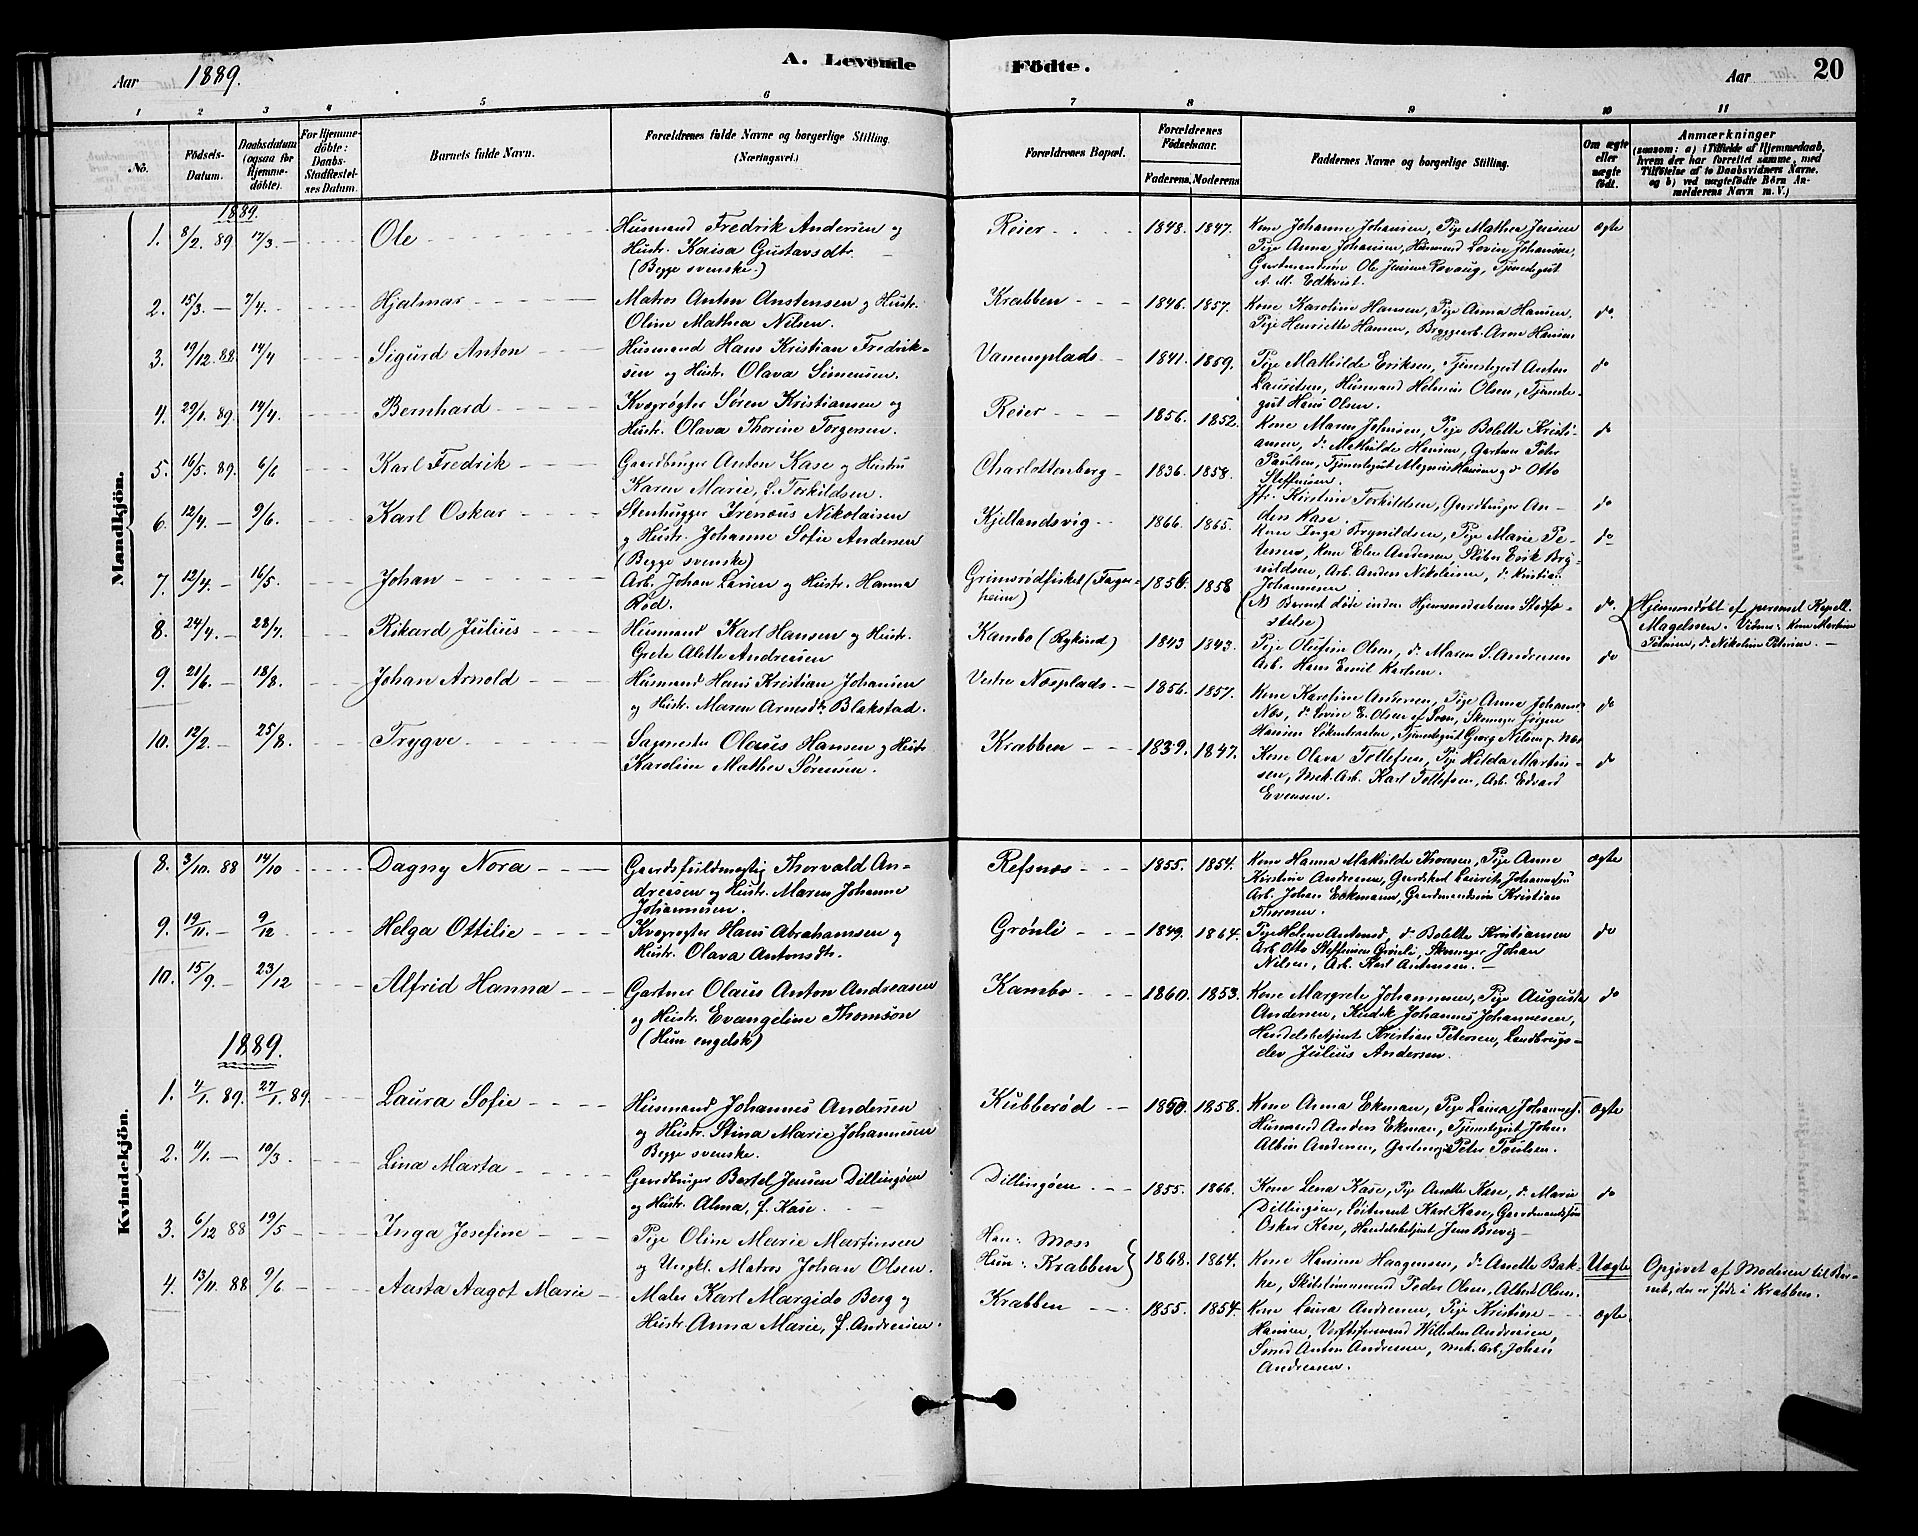 Aar 1889. A. Levende Födte. Aar 20
1 2 3 4 5 6 7 8 9 10 11
No.
Födsels-Datum.
Daabsdatum (ogsaa for Hjemme-döbte).
For Hjemme-döbte: Daabs-Stadfæstel-ses Datum.
Barnets fulde Navn.
Forældrenes fulde Navne og borgerlige Stilling.
(Næringsvei.)
Forældrenes Bopæl.
Forældrenes Födselsaar.
Faderens. Moderens.
Faddernes Navne og borgerlige Stilling.
Om ægte eller uægte födt.
Anmærkninger
(saasom: a) i Tilfælde af Hjemmedaab,
hvem der har forrettet samme, med
Tilföielse af to Daabsvidners Navne,
og b) ved uægtefödte Börn An-
melderens Navn m. V.)
Mandkjön.
1889.
1. 8/2. 89 17/3. Ole
Husmand Fredrik Andersen og
Hustr. Kaisa Gustavsdtr.
(Begge svenske.)
Reier 1848. 1847.
Kone Johanne Johansen, Pige Mathea Jensen
Pige Anna Johansen, Husmand Lovin Johansen,
Gaardmandssøn Ole Jensen, Tjenestegut
A. M. Edkvist.
ægte
2. 15/3. 7/4. Hjalmar
Matros Anton Anstensen og Hustr.
Oline Mathea Nilsen.
Krabben 1846. 1857.
Kone Karoline Hansen, Pige Anna Hansen,
Pige Henriette Hansen, Bryggearb. Aron Hansen
do.
3. 19/12 88 14/4 Sigurd Anton
Husmand Hans Kristian Fredrik-
sen og Hustr. Olava Simensen.
Vanemplads 1841. 1859.
Pige Mathilde Eriksen, Tjenestegut Anton
Lauritsen, Husmand Helmin Olsen, Tjeneste-
gut Hans Olsen.
do
4. 29/1. 89. 14/4. Bernhard
Kvægrøgter Søren Kristiansen og
Hustr. Olava Thorine Torgersen.
Reier 1856. 1852.
Kone Maren Johnsen, Pige Bolette Kristi-
ansen, do Mathilde Hansen, Gartner Peter
Paulsen, Tjenestegut Magnus Hansen og do Otto
Steffensen.
do
5. 16/5. 89. 6/6 Karl Fredrik
Gaardbruger Anton Kase og Hustru
Karen Marie, f. Torkildsen.
Charlottenberg 1836. 1858.
Jfr. Kirstine Torkildsen, Gaardbruger An-
ders Kase.
do
6. 12/4. 9/6. Karl Oskar
Stenhugger Irenæus Nikolaisen
og Hustr. Johanne Sofie Andersen
(Begge svenske)
Kjellandsvig 1866. 1865.
Kone Inga Brynildsen, Pige Marie Pe-
tersen, Kone Elen Andersen, Sliber Erik Bry-
nildsen, Arb. Anders Nikolaisen, do Kristian
Johannesen.
do
7. 12/4. 16/5. Johan
Arb. Johan Larsen og Hustr. Hanna
Rød.
Grimsrødfisket (Fager-
heim) 1856. 1858
(N. Barnet døde inden Hjemmedaabens Stadfæ-
stelse)
do.
Hjemmedøbt af personel Kapell.
Magelssen. Vidner: Kone Martine
Petersen, do Nikoline Petersen.
8. 24/4. 28/4. Rikard Julius
Husmand Karl Hansen og Hustr.
Grete Alette Andresen
Kambo (Rykind) 1843 1843.
Pige Olufine Olsen, do Maren S. Andresen
Arb. Hans Emil Karlsen.
do
9. 21/6. 18/8. Johan Arnold
Husmand Hans Kristian Johansen
og Hustr. Maren Arnesdtr. Blakstad.
Vestre Næsplads 1856. 1857.
Kone Karoline Andersen, Pige Anna Johanne
Næs, do Lovise E. Olsen, Skomager Jörgen
Hansen, Tjenestegut Georg Nilsen p. Næs
do
10. 12/2. 25/8. Trygve
Sagmester Olaus Hansen og Hustr.
Karoline Mathea Sørensen.
Krabben 1839. 1847.
Kone Olava Tollefsen, Pige Hilda Martin-
sen, Mek. Arb. Karl Tollefsen, Arb. Edvard
Evensen.
do
Kvindekjön.
8. 3/10. 88 14/10 Dagny Nora
Gaardsfuldmægtig Thorvald An-
dresen og Hustr. Maren Johanne
Johannesen.
Refsnæs 1855. 1854.
Kone Hanna Mathilde Thoresen, Pige Anne
Kirstine Andresen, Gaardskarl Laurits Johannesen
Arb. Johan Eckmann, Gaardmandssøn Kristian
Thoresen.
ægte
9. 19/11. 9/12 Helga Ottilie
Kvægrøgter Hans Abrahamsen og
Hustr. Olava Antonsdtr.
Grønli 1849. 1864.
Pige Helene Antonsd, do Bolette Kristiansen
Arb. Otto Steffensen Grønli, Skomager Johan
Nilsen, Arb. Karl Antonsen.
do
10. 15/9. 23/12 Alfrid Hanna
Gartner Olaus Anton Andreasen
og Hustr. Evangeline Thomson
(Hun engelsk)
Kambo 1860. 1853.
Kone Margrete Johannesen, Pige Augusta
Andersen, Kudsk Johannes Johannesen,
Handelsbetjent Kristian Petersen, Landbrugs-
elev Julius Andersen.
do
1889.
1. 4/1. 89. 27/1. 89. Laura Sofie
Husmand Johannes Andersen
og Hustr. Stina Marie Johannesen
Begge svenske.
Kubberød 1850. 1858.
Kone Anna Ekman, Pige Laura Johannes.
Husmand Anders Ekman, Tjenestegut Johan
Albin Andersen, Peter Poulsen.
ægte
2. 11/1. 10/3. Lina Marta
Gaardbruger Bertel Jensen Dillingøen
og Hustr. Alma, f. Kase.
Dillingøen 1855. 1866.
Kone Lena Kase, Pige Anette Kase, do Marie
Dillingøen, Løitnant Karl Kase, Gaardmandssøn
Oskar Kase, Handelsbetjent Jens Brevig
do
3. 6/12 88 19/5 Inga Josefine
Pige Oline Marie Martinsen
og Ungkl. Matros Johan Olsen.
Han: Moss
Hun: Krabben 1868. 1864.
Kone Hansine Haagensen, do Anette Bak-
ke, Skibstømmermand Peder Olsen, Albert Olsen.
Uægte
Opgivet af Moderen til Bar-
net, der er født i Krabben.
4. 13/11. 88 9/6 Aasta Aagot Marie
Maler Karl Margido Berg og
Hustr. Anna Marie, f. Andresen.
Krabben 1855. 1854.
Kone Laura Andresen, Pige Kristine
Hansen, Verftsformand Wilhelm Andresen,
Smed Anton Andresen, Mek. Arb. Johan
Andresen.
ægte